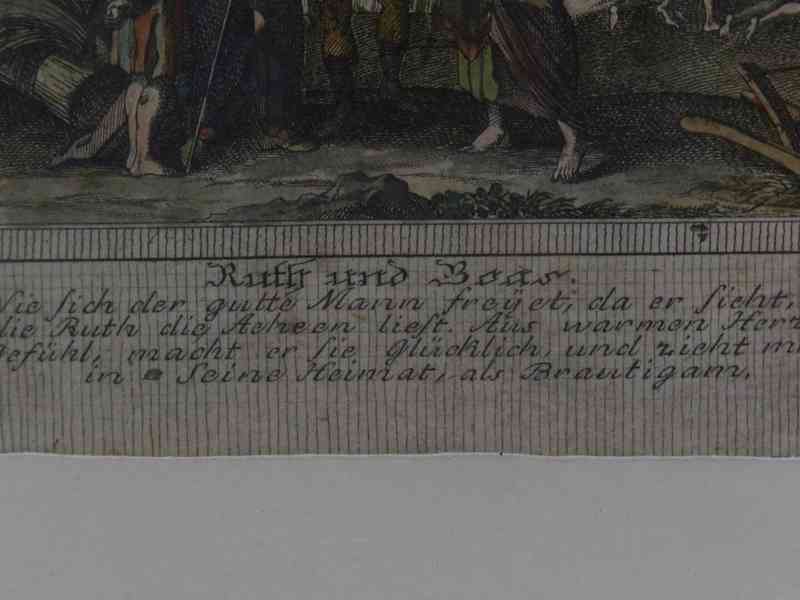 Ruth und Boas.
Wie sich der gutte Mann freÿet, da er sieht,
die Ruth die Aehren liest. Aus warmen Herz
Gefühl, macht er sie glücklich, und zieht
in Seine Heimat, als Brautigam.